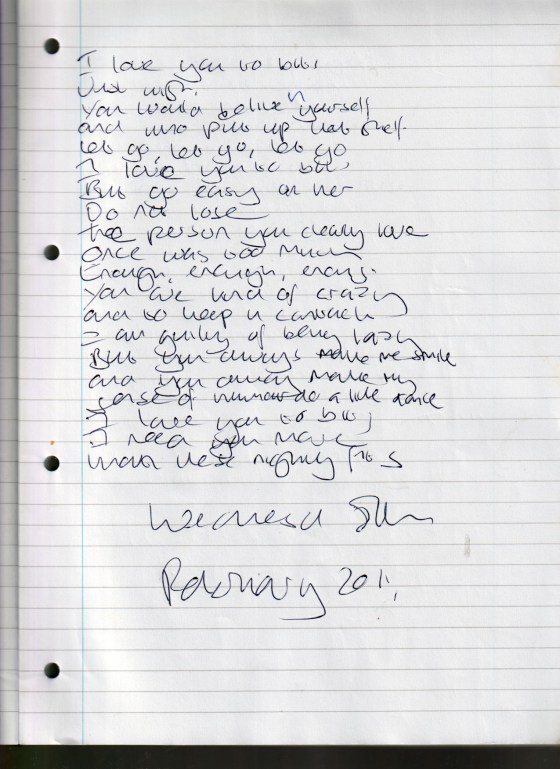 I love you to bits
Just
You would believe in yourself
and who puts up that shelf.
let go, let go, let go
I love you to bits
But go easy on her
Do not lose
the person you clearly love
Once was too much
Enough, enough, enough.
You are kind of crazy
and to keep in contact
I am guilty of being lazy
But you always make me smile
and you always make my
sense of humour do a little dance
I love you to bits
I need you more
these nights
February 2011,